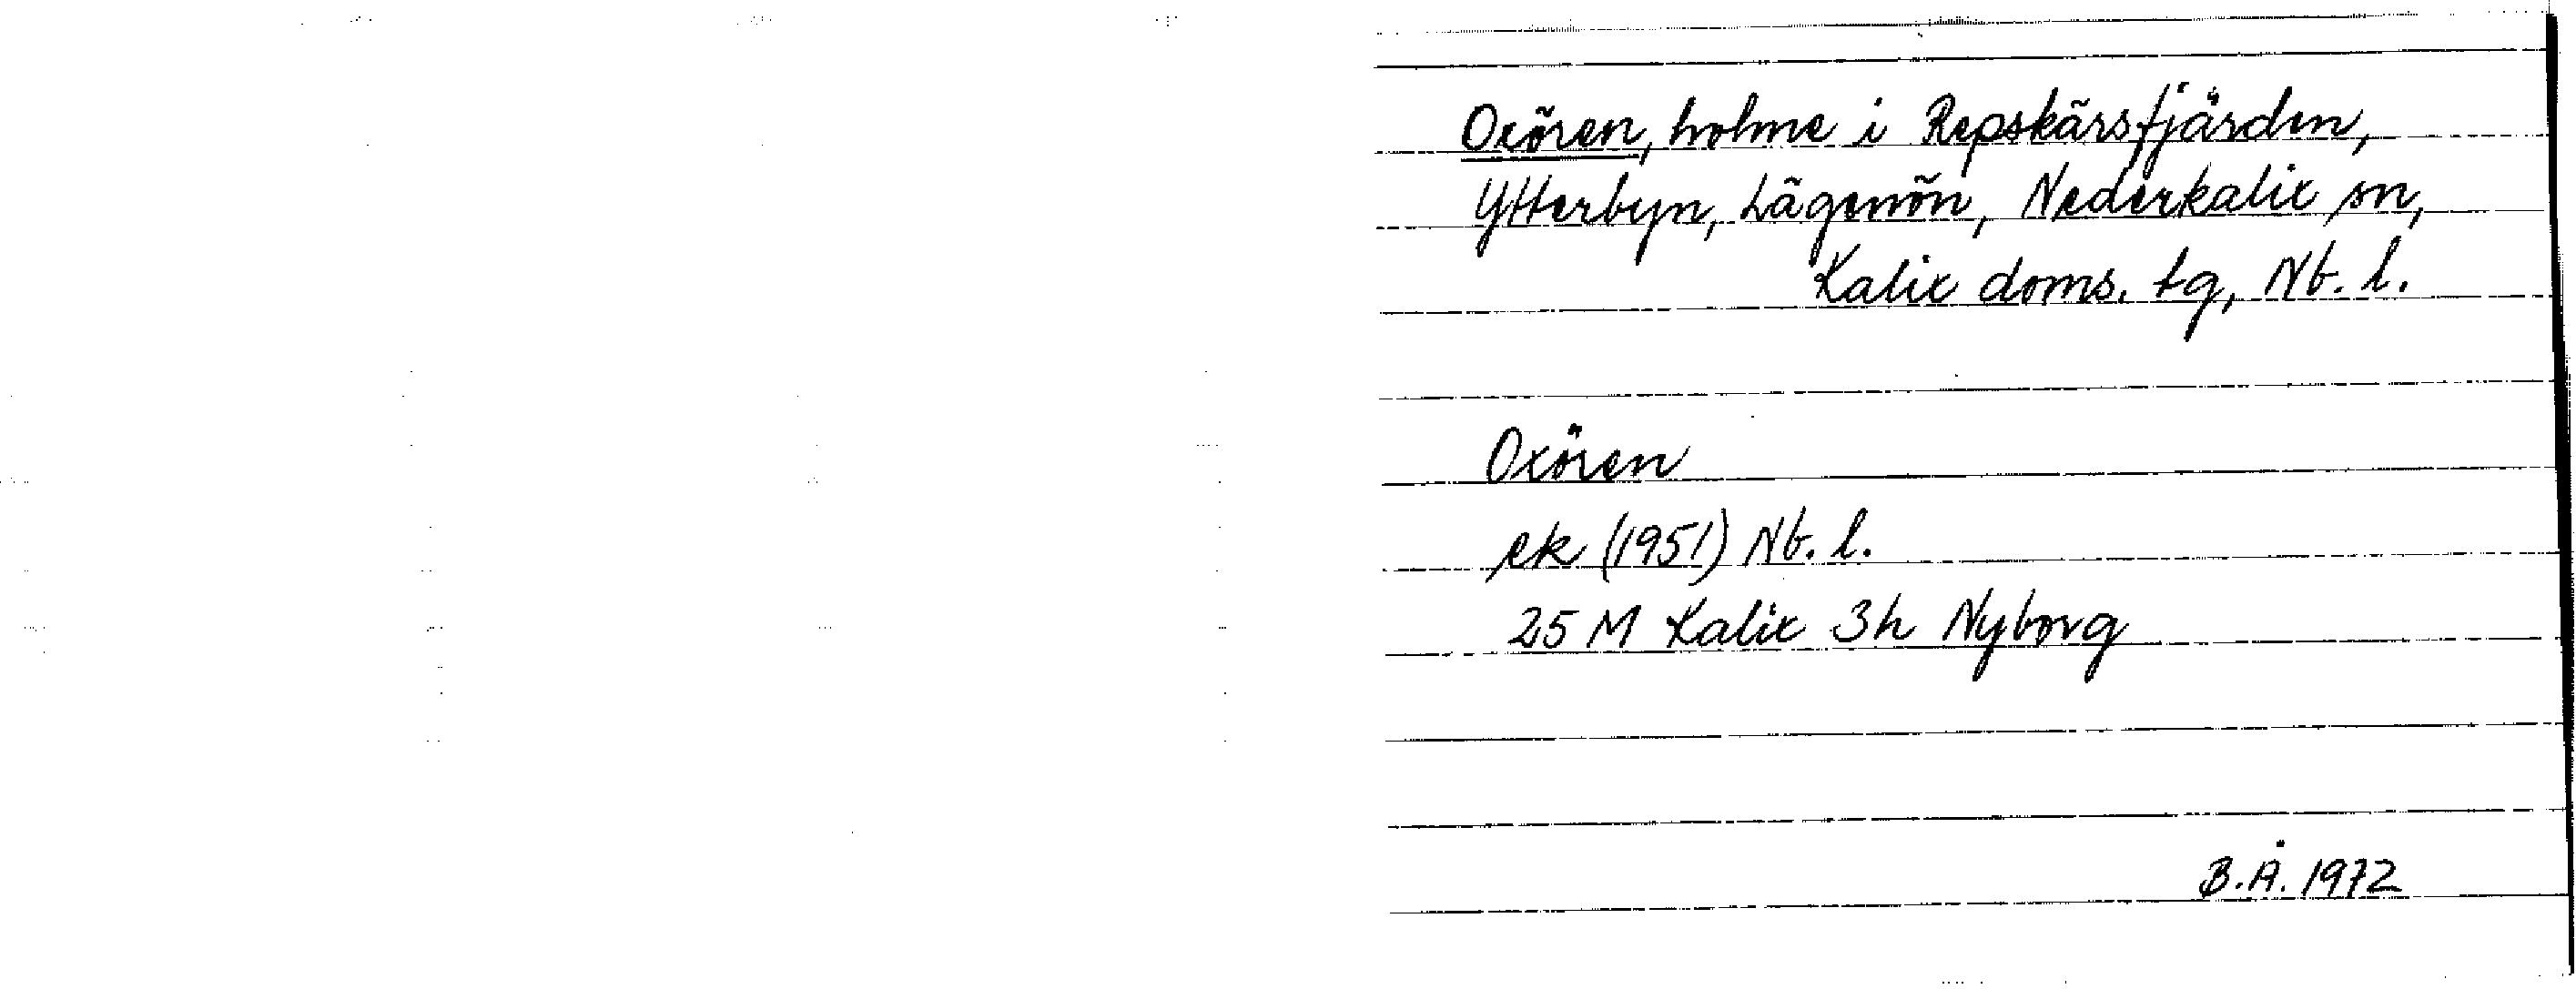 Oxören, holme i Repskärsfjärden,
Ytterbyn, Lägenön, Nederkalix sn,
Kalix doms. tg, Nb. l.
Oxören
ek (1951) Nb. l.
25 M Kalix 3h Nyborg
B.Å. 1972